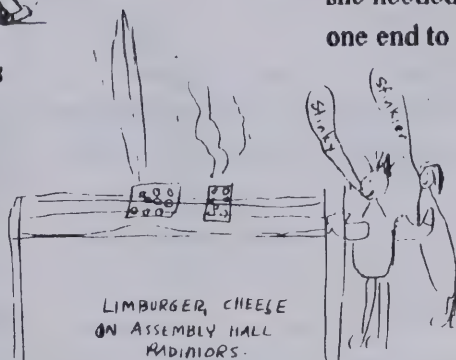 she needed
one end to
Stinky
Stinkier
LIMBURGER, CHEESE
ON ASSEMBLY HALL
RADIATORS.